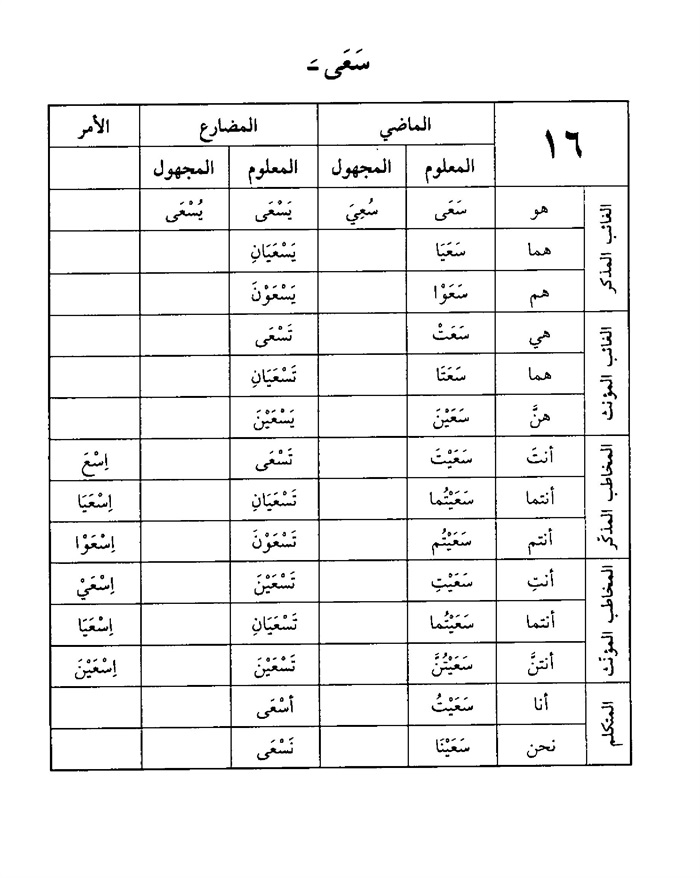 سَعَى ـَ
١٦ الماضي المضارع الأمر
المعلوم المجهول المعلوم المجهول
الغائب المذكر
هو سَعَى سُعِيَ يَسْعَى يُسْعَى
هما سَعَيَا يَسْعَيَانِ
هم سَعَوْا يَسْعَوْنَ
الغائب المؤنث
هي سَعَتْ تَسْعَى
هما سَعَتَا تَسْعَيَانِ
هنَّ سَعَيْنَ يَسْعَيْنَ
المخاطب المذكّر
أنتَ سَعَيْتَ تَسْعَى اِسْعَ
أنتما سَعَيْتُما تَسْعَيَانِ اِسْعَيَا
أنتم سَعَيْتُم تَسْعَوْنَ اِسْعَوْا
المخاطب المؤنّث
أنتِ سَعَيْتِ تَسْعَيْنَ اِسْعَيْ
أنتما سَعَيْتُما تَسْعَيَانِ اِسْعَيَا
أنتنَّ سَعَيْتُنَّ تَسْعَيْنَ اِسْعَيْنَ
المتكلم
أنا سَعَيْتُ أسْعَى
نحن سَعَيْنَا نَسْعَى